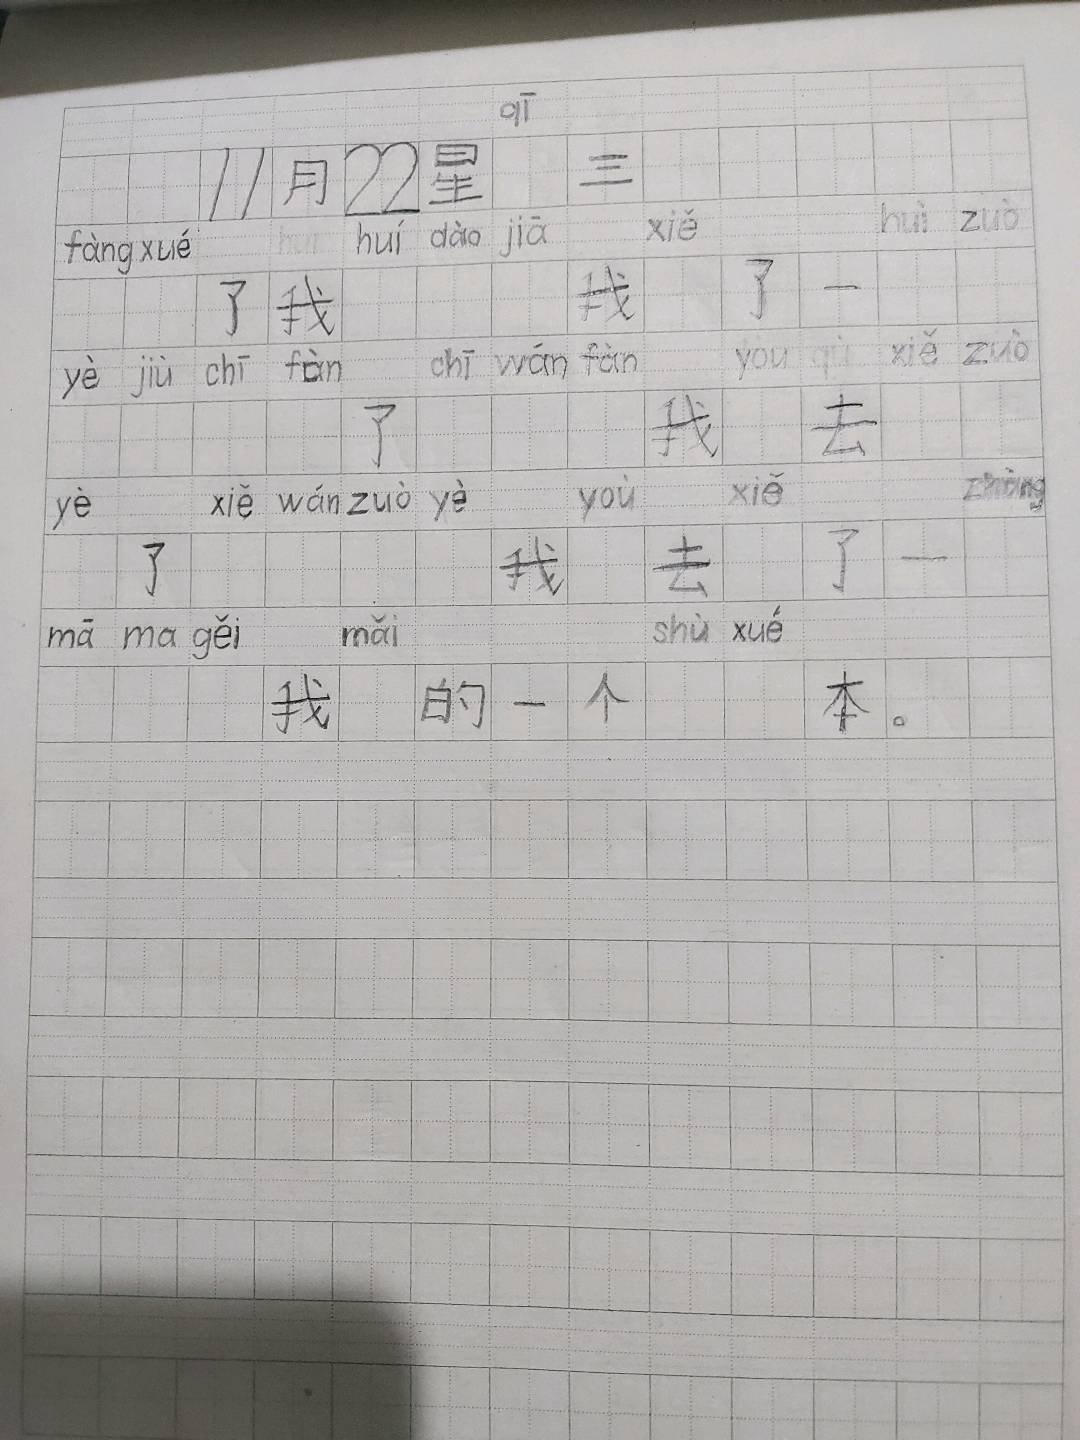 qī
11月22星 三
fàng xué huí dào jiā xiě huì zuò
了我 我 了一
yè jiù chī fàn chī wán fàn yòu qù xiě zuò
了 我 去
yè xiě wán zuò yè yoù xiě zhòng
了 我 去 了一
mā ma gěi mǎi shù xué
我 的一个 本。